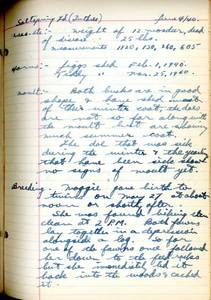 Saltspring Id. (Luther) June 9/40.
weights:- weight of 12 months, dead
of disease 25 lbs.
measurements 1220, 120, 360, 605
Horns:- Iggs shed Feb. 1, 1940.
Nov. 25, 1940.
moult:- Both bucks are in good
shape & have shed most
of their winter coat, the does
are not so far along with
the moult but are showing
much summer coat.
The doe that was sick
during the winter & the yearling
that have been sick show
no signs of moult yet.
Breeding:- Maggie gave birth to
twins on May 27 at about
noon or shortly after.
She was found licking them
clean at 2 P.M. Both fawns
lay together in a depression
alongside a log. So far
one of the fawns only followed
her down to the feed racks
but she immediately led it
back into the woods & cached
it.